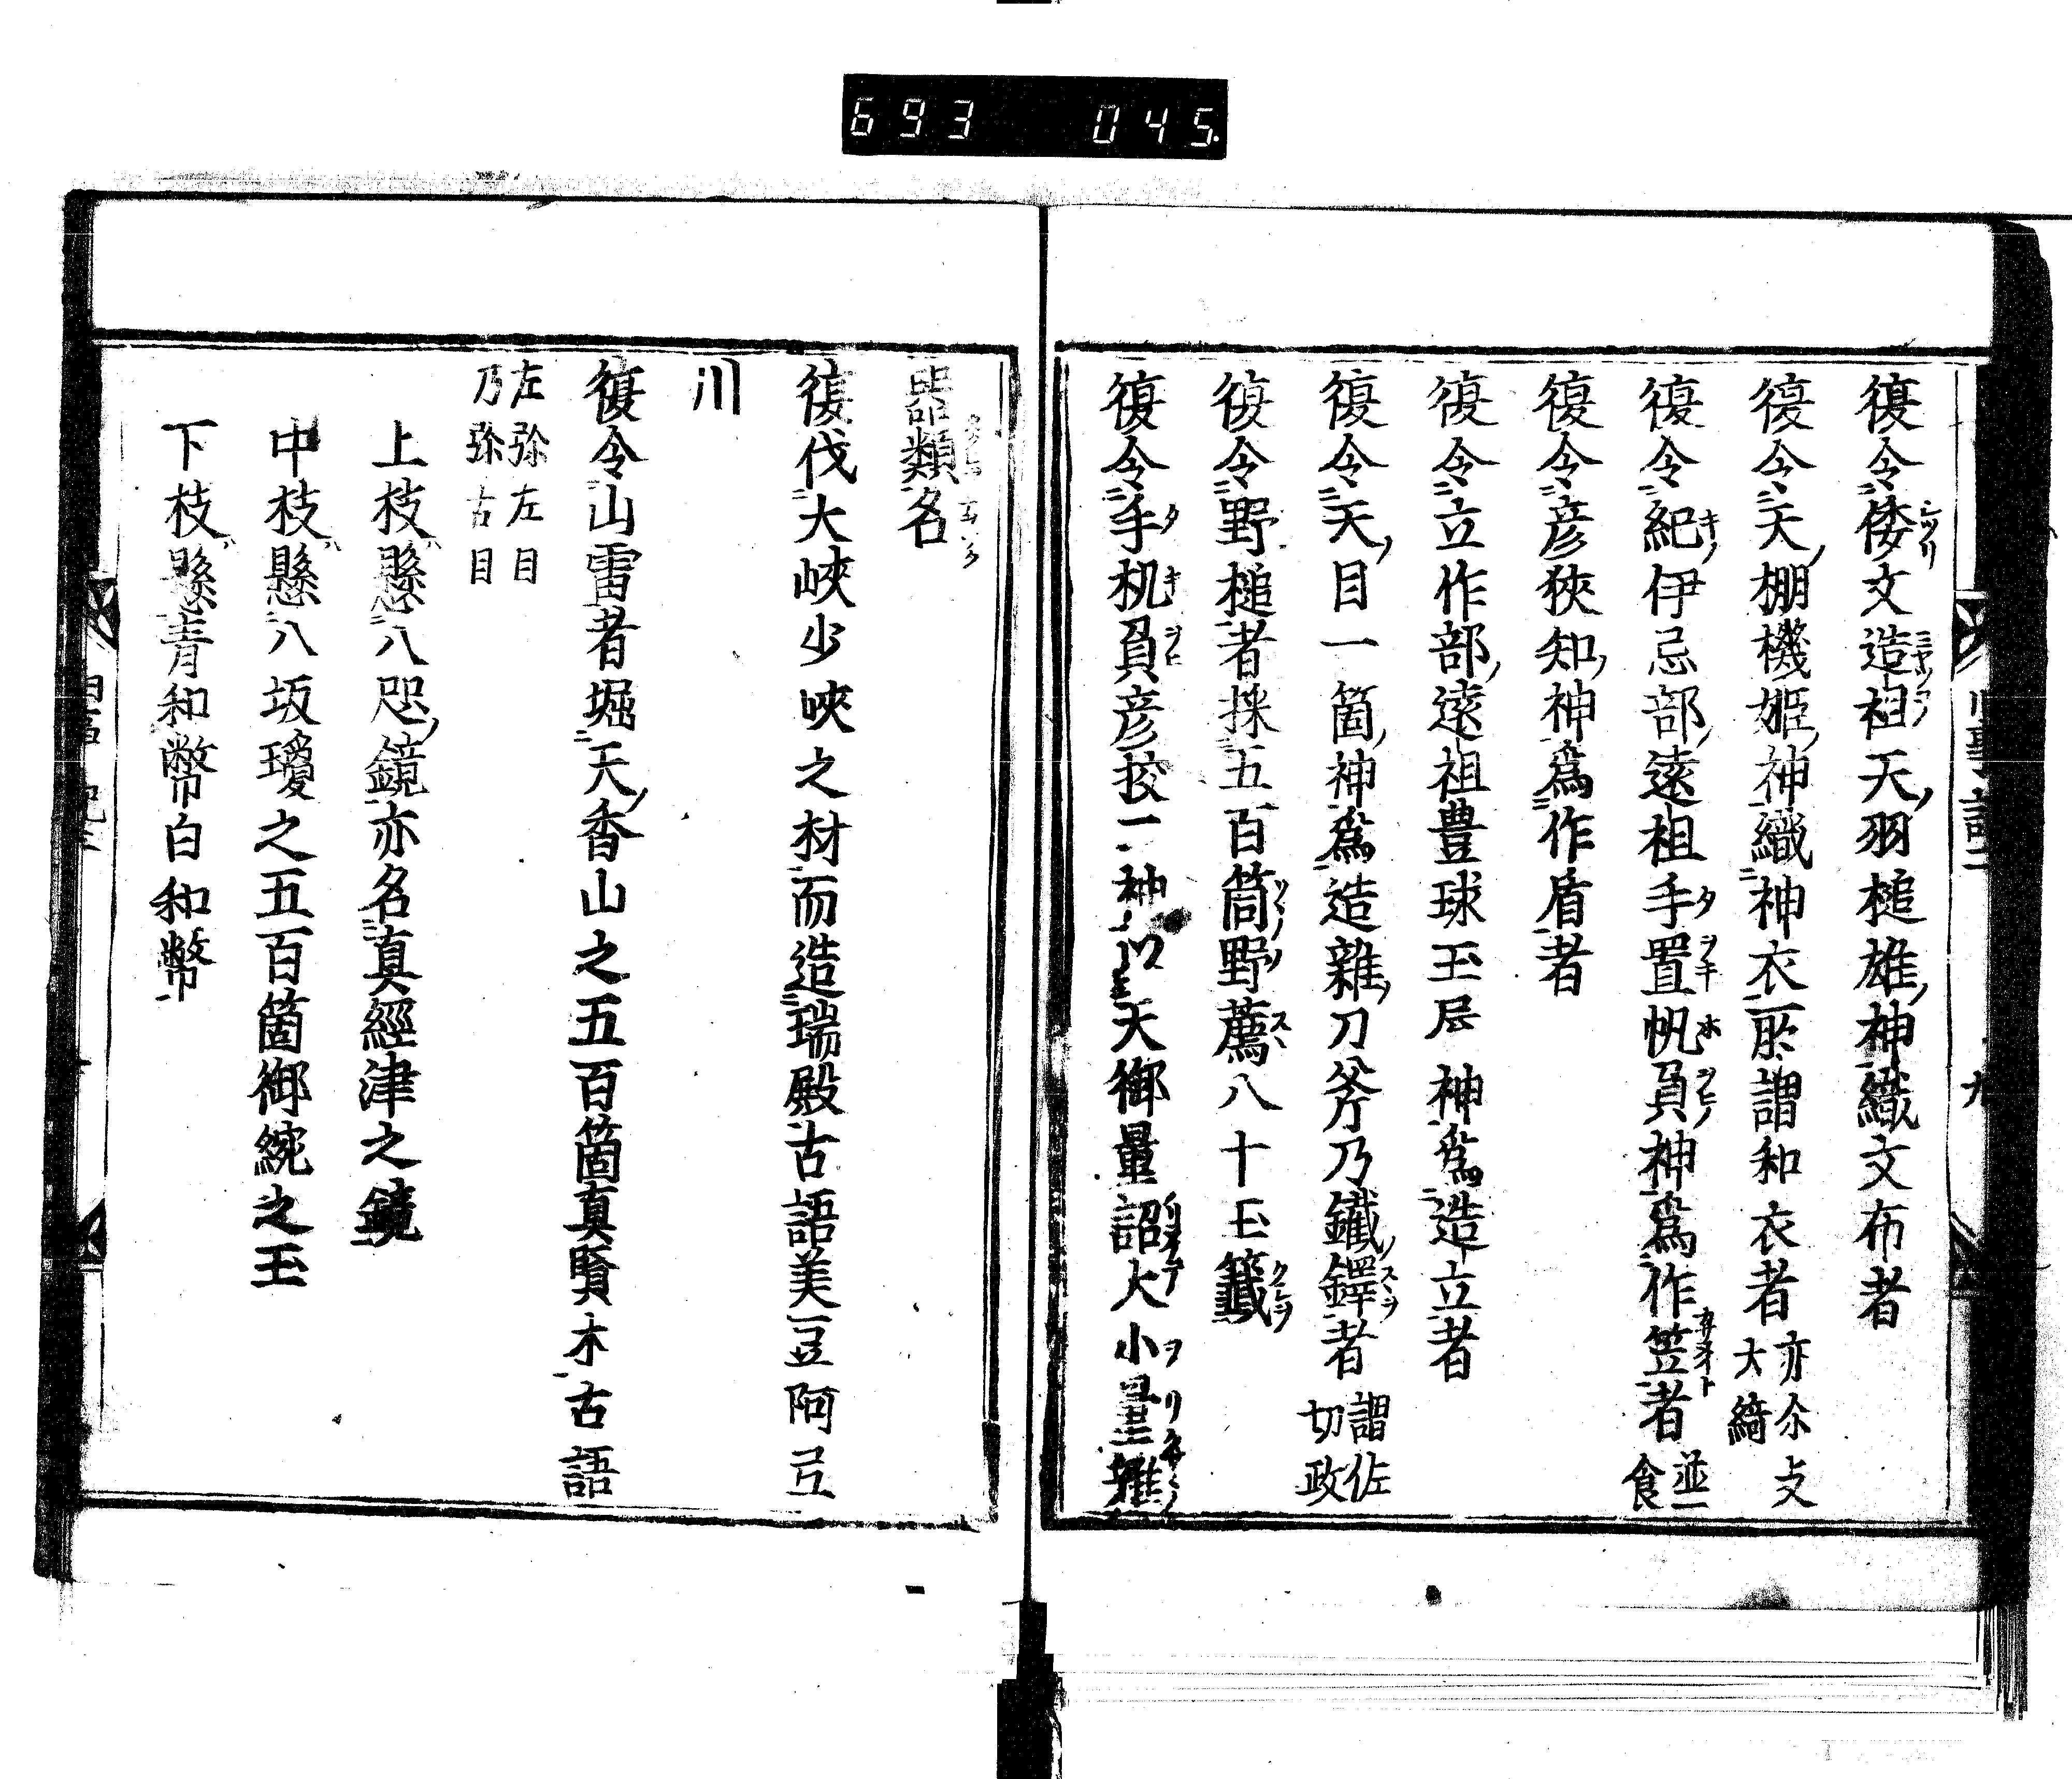 693 045
復令倭文造祖天羽槌雄神織文布者
復令天棚機姫神織神衣所謂和衣者亦尒支大綺
復令紀伊忌部遠祖手置帆負神爲作笠者並一食
復令彦狹知神爲作盾者
復令立作部遠祖豊球玉屋神爲造立者
復令天目一箇神爲造雜刀斧乃鐵鐸者謂佐切政
復令野槌者採五百筒野薦八十玉籤
復令手机負彦挍二神以天御量詔大小量雜
器類名
復伐大峽少峽之材而造瑞殿古語美豆阿
川
復令山雷者堀天香山之五百箇真賢木古語
左弥左目
乃弥古目
上枝縣八咫鏡亦名真經津之鏡
中枝懸八坂瓊之五百箇御綂之玉
下枝縣青和幣白和幣